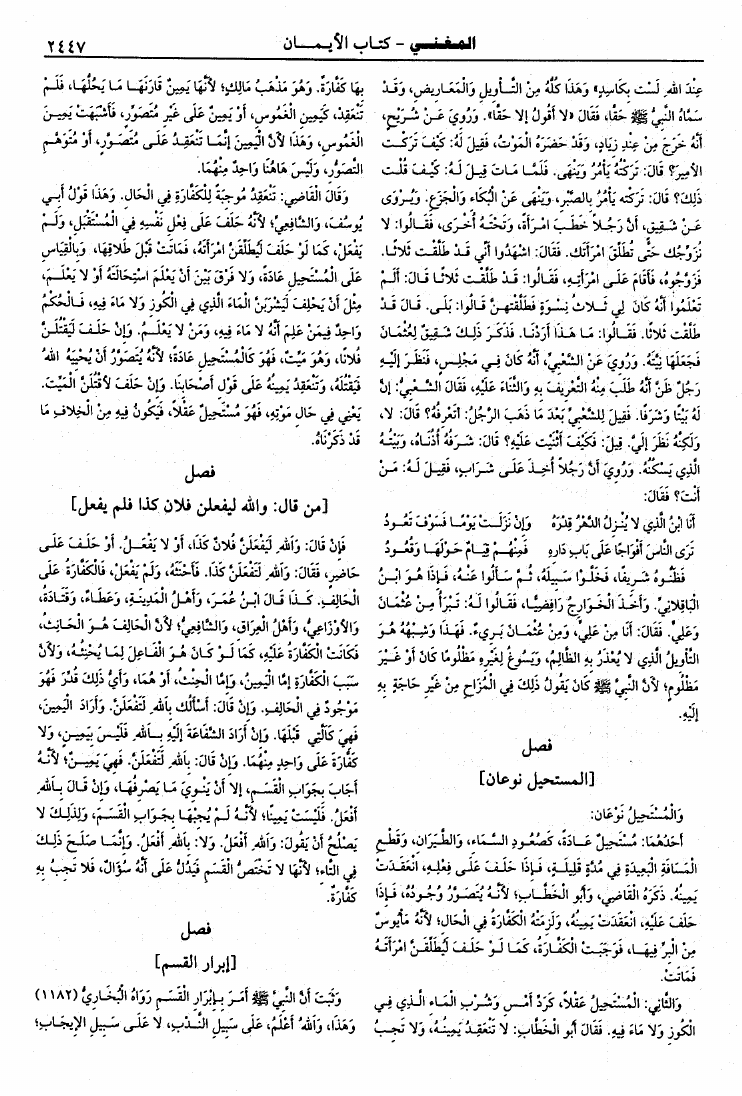 المغني - كتاب الأيمان
٢٤٤٧
عِنْدَ اللهِ لَسْتَ بِكَاسِدٍ» وَهَذَا كُلُّهُ مِنَ التَّأْوِيلِ وَالْمَعَارِيضِ، وَقَدْ
سَمَّاهُ النَّبِيُّ ﷺ حَقًّا، فَقَالَ «لاَ أَقُولُ إلاَّ حَقًّا». وَرُوِيَ عَنْ شُرَيْحٍ،
أَنَّهُ خَرَجَ مِنْ عِنْدِ زِيَادٍ، وَقَدْ حَضَرَهُ الْمَوْتُ، فَقِيلَ لَهُ: كَيْفَ تَرَكْت
الأَمِيرَ؟ قَالَ: تَرَكْتُهُ يَأْمُرُ وَيَنْهَى. فَلَمَّا مَاتَ قِيلَ لَهُ: كَيْفَ قُلْت
ذَلِكَ؟ قَالَ: تَرَكْته يَأْمُرُ بِالصَّبْرِ، وَيَنْهَى عَنْ الْبُكَاءِ وَالْجَزَعِ. وَيُرْوَى
عَنْ شَقِيقٍ، أَنَّ رَجُلاً خَطَبَ امْرَأَةً، وَتَحْتَهُ أُخْرَى، فَقَالُوا: لاَ
نُزَوِّجُك حَتَّى تُطَلِّقَ امْرَأَتَك. فَقَالَ: اشْهَدُوا أَنِّي قَدْ طَلَّقْت ثَلاَثًا.
فَزَوَّجُوهُ، فَأَقَامَ عَلَى امْرَأَتِهِ، فَقَالُوا: قَدْ طَلَّقْت ثَلاَثًا قَالَ: أَلَمْ
تَعْلَمُوا أَنَّهُ كَانَ لِي ثَلاَثُ نِسْوَةٍ فَطَلَّقْتهنَّ قَالُوا: بَلَى. قَالَ قَدْ
طَلَّقْت ثَلاَثًا. فَقَالُوا: مَا هَذَا أَرَدْنَا. فَذَكَرَ ذَلِكَ شَقِيقٌ لِعُثْمَانَ
فَجَعَلَهَا نِيَّتَهُ. وَرُوِيَ عَنْ الشَّعْبِيِّ، أَنَّهُ كَانَ فِي مَجْلِسٍ، فَنَظَرَ إلَيْهِ
رَجُلٌ ظَنَّ أَنَّهُ طَلَبَ مِنْهُ التَّعْرِيفَ بِهِ وَالثَّنَاءَ عَلَيْهِ، فَقَالَ الشَّعْبِيُّ: إنَّ
لَهُ بَيْتًا وَشَرَفًا. فَقِيلَ لِلشَّعْبِيِّ بَعْدَ مَا ذَهَبَ الرَّجُلُ: أَتَعْرِفُهُ؟ قَالَ: لاَ،
وَلَكِنَّهُ نَظَرَ إلَيَّ. قِيلَ: فَكَيْفَ أَثْنَيْت عَلَيْهِ؟ قَالَ: شَرَفُهُ أُذُنَاهُ، وَبَيْتُهُ
الَّذِي يَسْكُنُهُ. وَرُوِيَ أَنَّ رَجُلاً أُخِذَ عَلَى شَرَابٍ، فَقِيلَ لَهُ: مَنْ
أَنْتَ؟ فَقَالَ:
أَنَا ابْنُ الَّذِي لاَ يُنْزِلُ الدَّهْرُ قِدْرَهُ وَإِنْ نَزَلَتْ يَوْمًا فَسَوْفَ تَعُودُ
تَرَى النَّاسَ أَفْوَاجًا عَلَى بَابِ دَارِهِ فَمِنْهُمْ قِيَامٌ حَوْلَهَا وَقُعُودُ
فَظَنُّوهُ شَرِيفًا، فَخَلَّوْا سَبِيلَهُ، ثُمَّ سَأَلُوا عَنْهُ، فَإِذَا هُوَ ابْنُ
الْبَاقِلاَّنِيِّ. وَأَخَذَ الْخَوَارِجُ رَافِضِيًّا، فَقَالُوا لَهُ: تَبْرَأْ مِنْ عُثْمَانَ
وَعَلِيٍّ. فَقَالَ: أَنَا مِنْ عَلِيٍّ، وَمِنْ عُثْمَانَ بَرِيءٌ. فَهَذَا وَشِبْهُهُ هُوَ
التَّأْوِيلُ الَّذِي لاَ يُعْذَرُ بِهِ الظَّالِمُ، وَيَسُوغُ لِغَيْرِهِ مَظْلُومًا كَانَ أَوْ غَيْرَ
مَظْلُومٍ؛ لأَنَّ النَّبِيَّ ﷺ كَانَ يَقُولُ ذَلِكَ فِي الْمُزَاحِ مِنْ غَيْرِ حَاجَةٍ بِهِ
إلَيْهِ.
فصل
[المستحيل نوعان]
وَالْمُسْتَحِيلُ نَوْعَانِ:
أَحَدُهُمَا: مُسْتَحِيلٌ عَادَةً، كَصُعُودِ السَّمَاءِ، وَالطَّيَرَانِ، وَقَطْعِ
الْمَسَافَةِ الْبَعِيدَةِ فِي مُدَّةٍ قَلِيلَةٍ، فَإِذَا حَلَفَ عَلَى فِعْلِهِ، انْعَقَدَتْ
يَمِينُهُ. ذَكَرَهُ الْقَاضِي، وَأَبُو الْخَطَّابِ؛ لأَنَّهُ يُتَصَوَّرُ وُجُودُهُ، فَإِذَا
حَلَفَ عَلَيْهِ، انْعَقَدَتْ يَمِينُهُ، وَلَزِمَتْهُ الْكَفَّارَةُ فِي الْحَالِ؛ لأَنَّهُ مَأْيُوسٌ
مِنْ الْبِرِّ فِيهَا، فَوَجَبَتْ الْكَفَّارَةُ، كَمَا لَوْ حَلَفَ لَيُطَلِّقَنَّ امْرَأَتَهُ
فَمَاتَتْ.
وَالثَّانِي: الْمُسْتَحِيلُ عَقْلاً، كَرَدِّ أَمْسِ وَشُرْبِ الْمَاءِ الَّذِي فِي
الْكُوزِ وَلاَ مَاءَ فِيهِ. فَقَالَ أَبُو الْخَطَّابِ: لاَ تَنْعَقِدُ يَمِينُهُ، وَلاَ تَجِبُ
بِهَا كَفَّارَةٌ. وَهُوَ مَذْهَبُ مَالِكٍ؛ لأَنَّهَا يَمِينٌ قَارَنَهَا مَا يَحُلُّهَا، فَلَمْ
تَنْعَقِدْ، كَيَمِينِ الْغَمُوسِ، أَوْ يَمِينٌ عَلَى غَيْرِ مُتَصَوَّرٍ، فَأَشْبَهَتْ يَمِينَ
الْغَمُوسِ، وَهَذَا لأَنَّ الْيَمِينَ إنَّمَا تَنْعَقِدُ عَلَى مُتَصَوَّرٍ، أَوْ مُتَوَهَّمِ
التَّصَوُّرِ، وَلَيْسَ هَاهُنَا وَاحِدٌ مِنْهُمَا.
وَقَالَ الْقَاضِي: تَنْعَقِدُ مُوجِبَةً لِلْكَفَّارَةِ فِي الْحَالِ. وَهَذَا قَوْلُ أَبِي
يُوسُفَ، وَالشَّافِعِيِّ؛ لأَنَّهُ حَلَفَ عَلَى فِعْلِ نَفْسِهِ فِي الْمُسْتَقْبَلِ، وَلَمْ
يَفْعَلْ، كَمَا لَوْ حَلَفَ لَيُطَلِّقَنَّ امْرَأَتَهُ، فَمَاتَتْ قَبْلَ طَلاَقِهَا، وَبِالْقِيَاسِ
عَلَى الْمُسْتَحِيلِ عَادَةً، وَلاَ فَرْقَ بَيْنَ أَنْ يَعْلَمَ اسْتِحَالَتَهُ أَوْ لاَ يَعْلَمَ،
مِثْلُ أَنْ يَحْلِفَ لَيَشْرَبَنَّ الْمَاءَ الَّذِي فِي الْكُوزِ وَلاَ مَاءَ فِيهِ، فَالْحُكْمُ
وَاحِدٌ فِيمَنْ عَلِمَ أَنَّهُ لاَ مَاءَ فِيهِ، وَمَنْ لاَ يَعْلَمُ. وَإِنْ حَلَفَ لَيَقْتُلَنَّ
فُلاَنًا، وَهُوَ مَيِّتٌ، فَهُوَ كَالْمُسْتَحِيلِ عَادَةً؛ لأَنَّهُ يُتَصَوَّرُ أَنْ يُحْيِيَهُ اللهُ
فَيَقْتُلَهُ، وَتَنْعَقِدُ يَمِينُهُ عَلَى قَوْلِ أَصْحَابِنَا. وَإِنْ حَلَفَ لأَقْتُلَنَّ الْمَيِّتَ.
يَعْنِي فِي حَالِ مَوْتِهِ، فَهُوَ مُسْتَحِيلٌ عَقْلاً، فَيَكُونُ فِيهِ مِنْ الْخِلاَفِ مَا
قَدْ ذَكَرْنَاهُ.
فصل
[من قال: والله ليفعلن فلان كذا فلم يفعل]
فَإِنْ قَالَ: وَاللهِ لَيَفْعَلَنَّ فُلاَنٌ كَذَا، أَوْ لاَ يَفْعَلُ. أَوْ حَلَفَ عَلَى
حَاضِرٍ، فَقَالَ: وَاللهِ لَتَفْعَلَنَّ كَذَا. فَأَحْنَثَهُ، وَلَمْ يَفْعَلْ، فَالْكَفَّارَةُ عَلَى
الْحَالِفِ. كَذَا قَالَ ابْنُ عُمَرَ، وَأَهْلُ الْمَدِينَةِ، وَعَطَاءٌ، وَقَتَادَةُ،
وَالأَوْزَاعِيُّ، وَأَهْلُ الْعِرَاقِ، وَالشَّافِعِيُّ؛ لأَنَّ الْحَالِفَ هُوَ الْحَانِثُ،
فَكَانَتْ الْكَفَّارَةُ عَلَيْهِ، كَمَا لَوْ كَانَ هُوَ الْفَاعِلَ لِمَا يُحْنِثُهُ، وَلأَنَّ
سَبَبَ الْكَفَّارَةِ إمَّا الْيَمِينُ، وَإِمَّا الْحِنْثُ، أَوْ هُمَا، وَأَيُّ ذَلِكَ قُدِّرَ فَهُوَ
مَوْجُودٌ فِي الْحَالِفِ. وَإِنْ قَالَ: أَسْأَلُك بِاللهِ لَتَفْعَلَنَّ. وَأَرَادَ الْيَمِينَ،
فَهِيَ كَالَّتِي قَبْلَهَا. وَإِنْ أَرَادَ الشَّفَاعَةَ إلَيْهِ بِاللهِ فَلَيْسَ بِيَمِينٍ، وَلاَ
كَفَّارَةَ عَلَى وَاحِدٍ مِنْهُمَا. وَإِنْ قَالَ: بِاللهِ لَتَفْعَلَنَّ. فَهِيَ يَمِينٌ؛ لأَنَّهُ
أَجَابَ بِجَوَابِ الْقَسَمِ، إلاَّ أَنْ يَنْوِيَ مَا يَصْرِفُهَا، وَإِنْ قَالَ بِاللهِ
أَفْعَلُ. فَلَيْسَتْ يَمِينًا؛ لأَنَّهُ لَمْ يُجِبْهَا بِجَوَابِ الْقَسَمِ، وَلِذَلِكَ لاَ
يَصْلُحُ أَنْ يَقُولَ: وَاللهِ أَفْعَلُ. وَلاَ: بِاللهِ أَفْعَلُ. وَإِنَّمَا صَلَحَ ذَلِكَ
فِي التَّاءِ؛ لأَنَّهَا لاَ تَخْتَصُّ الْقَسَمَ فَيَدُلُّ عَلَى أَنَّهُ سُؤَالٌ، فَلاَ تَجِبُ بِهِ
كَفَّارَةٌ.
فصل
[إبرار القسم]
وَثَبَتَ أَنَّ النَّبِيَّ ﷺ أَمَرَ بِإِبْرَارِ الْقَسَمِ رَوَاهُ الْبُخَارِيُّ (١١٨٢)
وَهَذَا، وَاللهُ أَعْلَمُ، عَلَى سَبِيلِ النَّدْبِ، لاَ عَلَى سَبِيلِ الإِيجَابِ؛